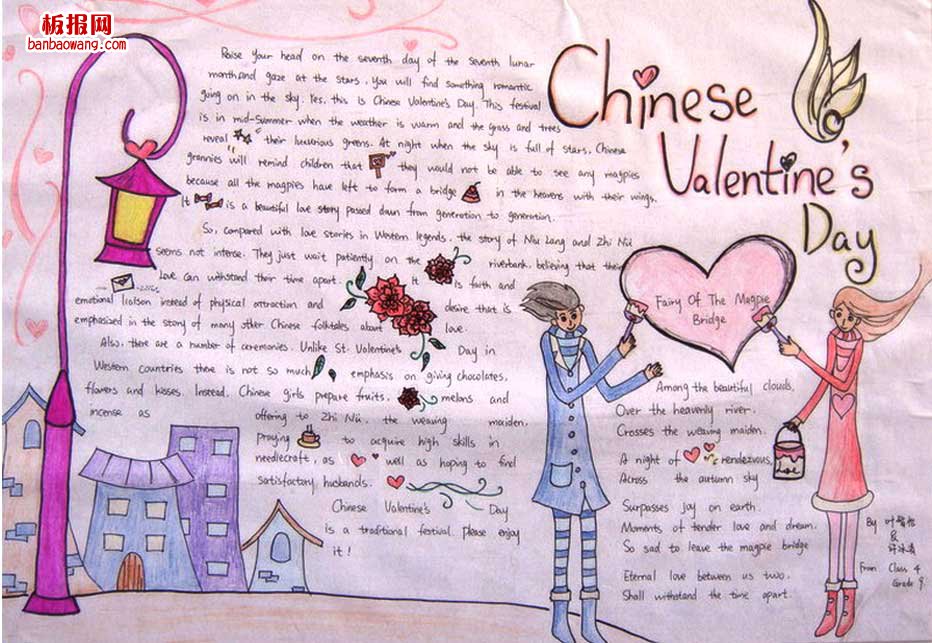 板报网
banbaowang.com
Chinese
Valentine's
Day
Raise your head on the seventh day of the seventh lunar
month and gaze at the stars. You will find something romantic
going on in the sky. Yes, this is Chinese Valentine's Day. This festival
is in mid-Summer when the weather is warm and the grass and trees
reveal their luxurious greens. At night when the sky is full of stars, Chinese
grannies will remind children that they would not be able to see any magpies
because all the magpies have left to form a bridge in the heavens with their wings.
It is a beautiful love story passed down from generation to generation.
So, compared with love stories in Western legends, the story of Niu Lang and Zhi Nü
seems not intense. They just wait patiently on the riverbank, believing that their
Love can withstand their time apart. It is faith and
emotional liaison instead of physical attraction and desire that is
emphasized in the story of many other Chinese folktales about love.
Also, there are a number of ceremonies. Unlike St. Valentine's Day in
Western countries there is not so much emphasis on giving chocolates,
flowers and kisses. Instead, Chinese girls prepare fruits, melons and
incense as offering to Zhi Nü, the weaving maiden,
praying to acquire high skills in
needlecraft, as well as hoping to find
satisfactory husbands.
Chinese Valentine's Day
is a traditional festival. Please enjoy
it!
Fairy Of The Magpie
Bridge
Among the beautiful clouds,
Over the heavenly river,
Crosses the weaving maiden.
A night of rendezvous,
Across the autumn sky
Surpasses joy on earth.
Moments of tender love and dream,
So sad to leave the magpie bridge
Eternal love between us two,
Shall withstand the time apart.
love
By 叶
From Class 4
Grade 9